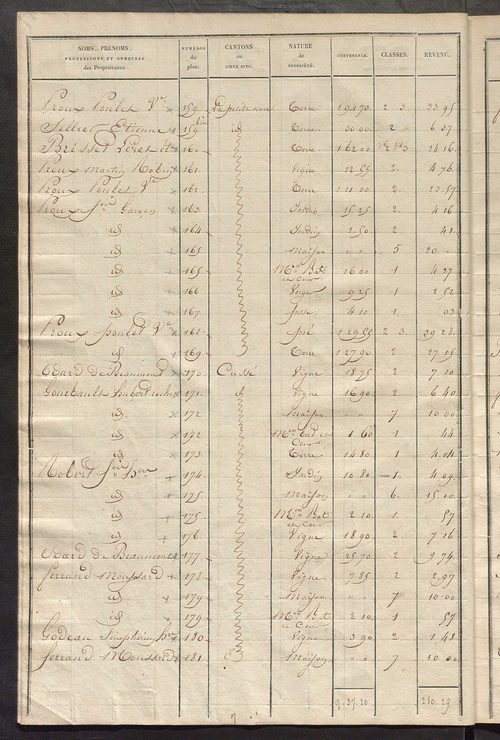 NOMS, PRÉNOMS, PROFESSIONS ET DEMEURES des Propriétaires. NUMÉROS du plan. CANTONS ou LIEUX DITS. NATURE de PROPRIÉTÉ. CONTENANCE. CLASSES. REVENU.
Proux Poulet Vve 159 La petite Terre 1 94 70 2 3 33 95
Sellier Etienne 159 bis id Terre 30 00 2 6 37
Brisset 160 Terre 1 62 00 24 16
Proux Martin 161 Vigne 12 55 2 4 76
Proux Poulet Vve 162 Terre 1 11 00 2 23 57
Proux Garçon 163 Jardin 15 25 2 4 16
id 164 Jardin 1 50 2 41
id 165 Maison " " 5 20 "
id 165 Mon Bat et Cour 16 00 1 4 37
id 166 9 25 1 2 52
id 167 fossé 4 10 1 03
Proux poulet Vve 168 pré 1 29 55 2 3 39 28
id 169 Terre 1 27 90 2 27 15
Odard de Beaumont 170 Cussé Vigne 18 75 2 7 10
Goubault hubert 171 id Vigne 16 90 2 6 40
id 172 Maison 7 10 00
id 172 Mon bat et Cour 1 60 1 44
id 173 Terre 14 80 1 4 04
Robert 174 Jardin 10 80 1 4 09
id 175 Maison " " 6 15 00
id 175 Mon Bat et Cour 2 10 1 57
id 176 Vigne 18 90 2 7 16
Odard de Beaumont 177 Vigne 25 70 2 9 74
ferrand Moussard 178 Vigne 7 85 2 2 97
id 179 Maison " " 7 10 00
id 179 Mon Bat et Cour 2 10 1 57
Godeau 180 Vigne 3 90 2 1 48
ferrand Moussard 181 Maison " " 7 10 00